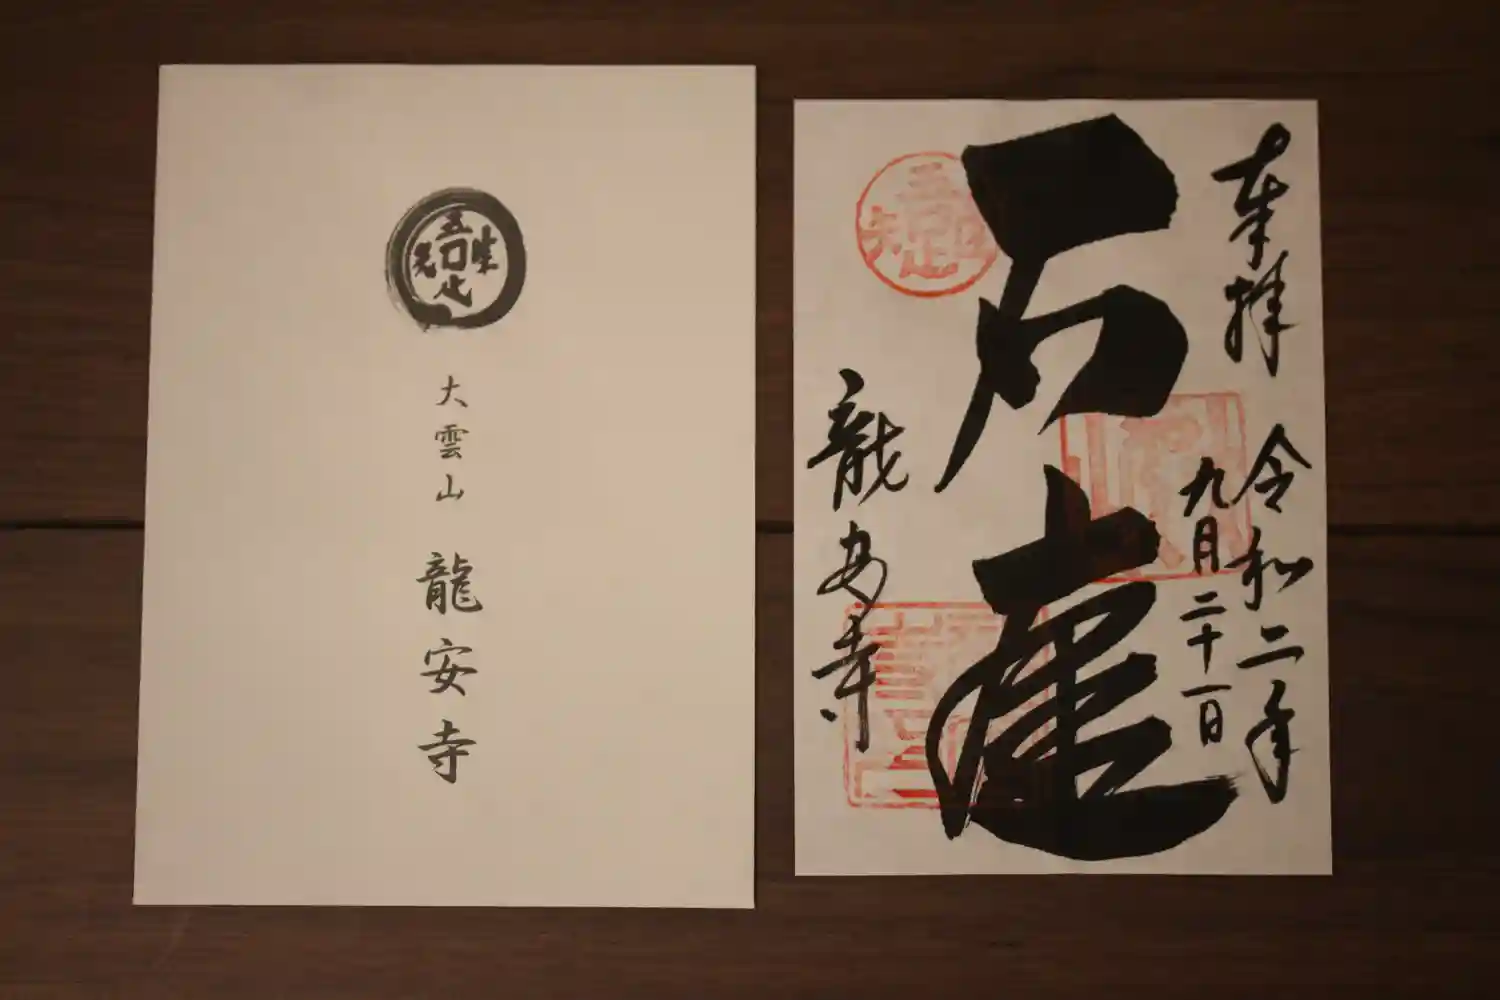 吾唯足知
大雲山 龍安寺
奉拝 令和二年
九月二十一日
石庭
龍安寺